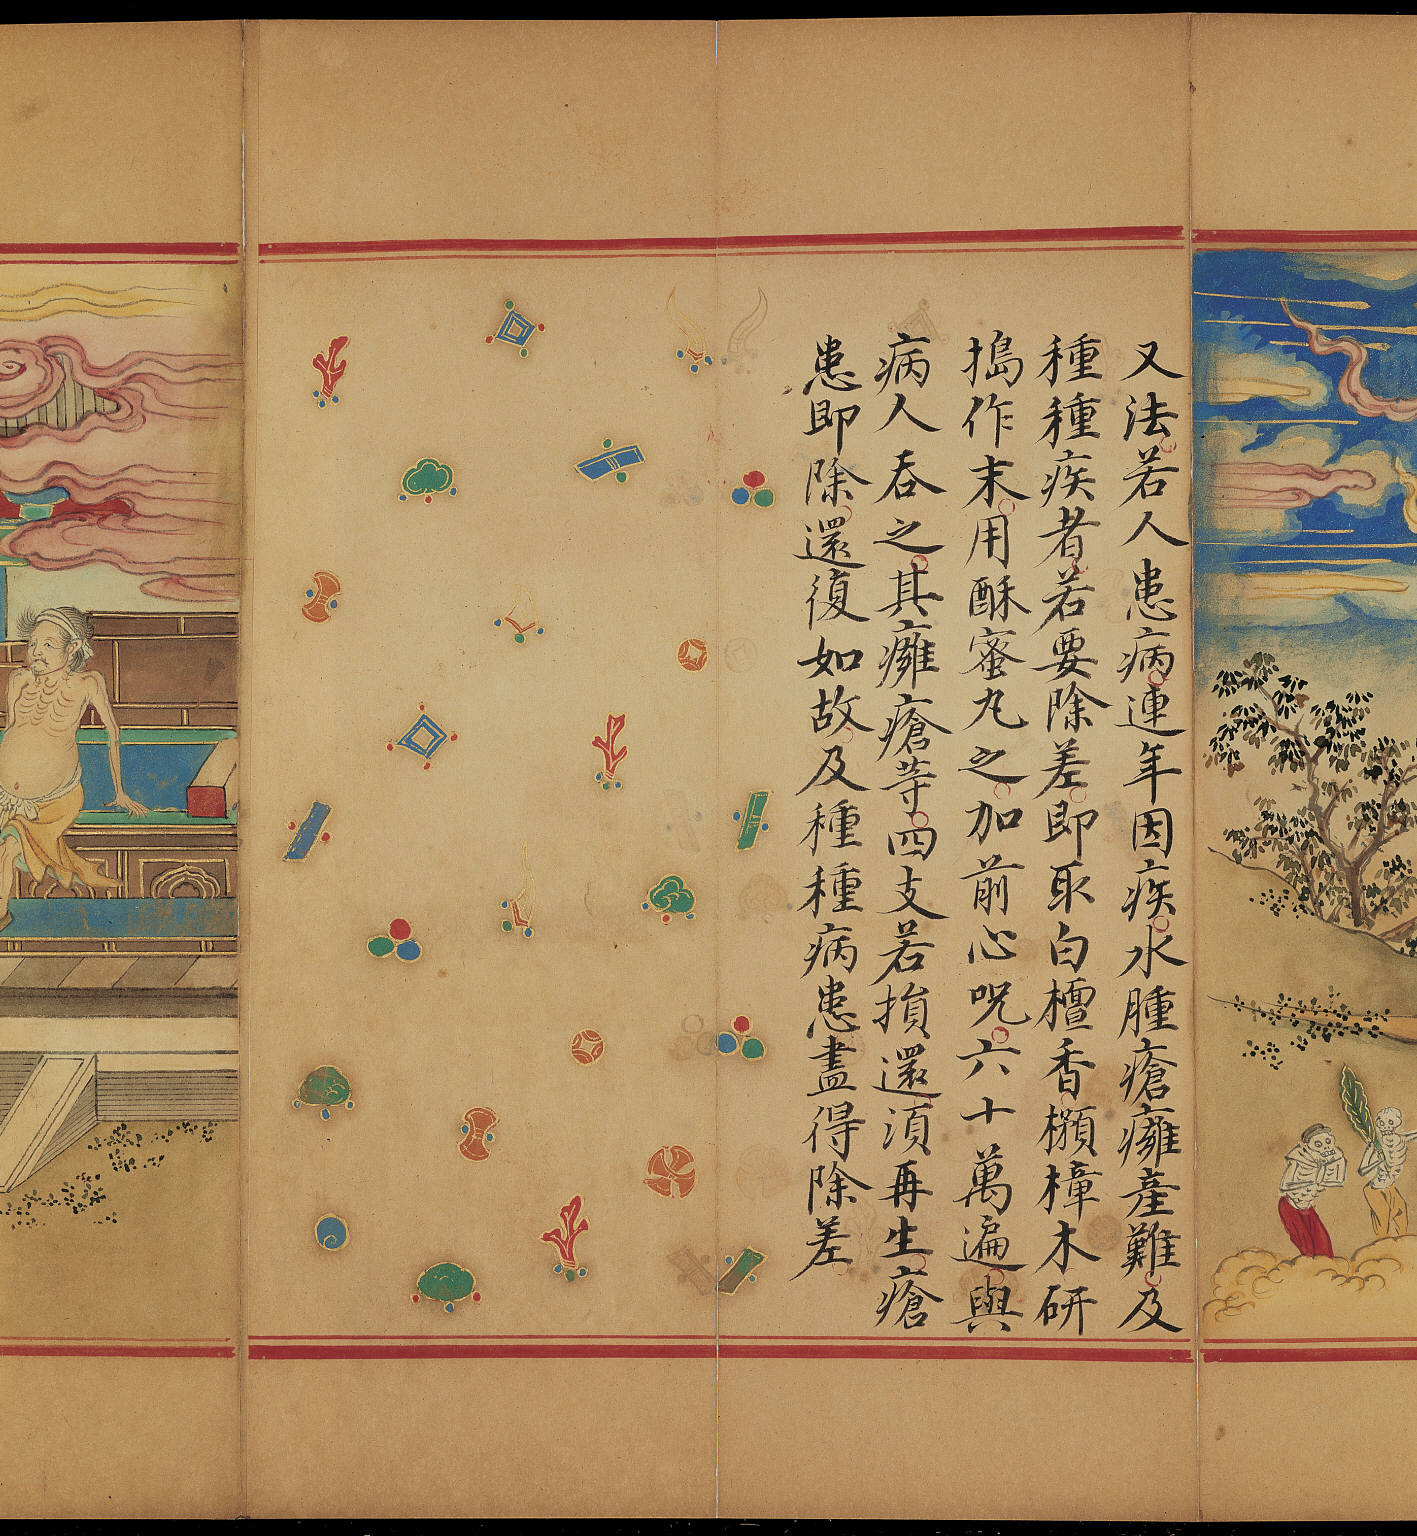 又法若人患病連年因疾水腫瘡癰產難及
種種疾者若要除差即取白檀香櫇樟木研
搗作末用酥蜜丸之加前心呪六十萬遍與
病人吞之其癰瘡等四支若損還湏再生瘡
患即除還復如故及種種病患盡得除差